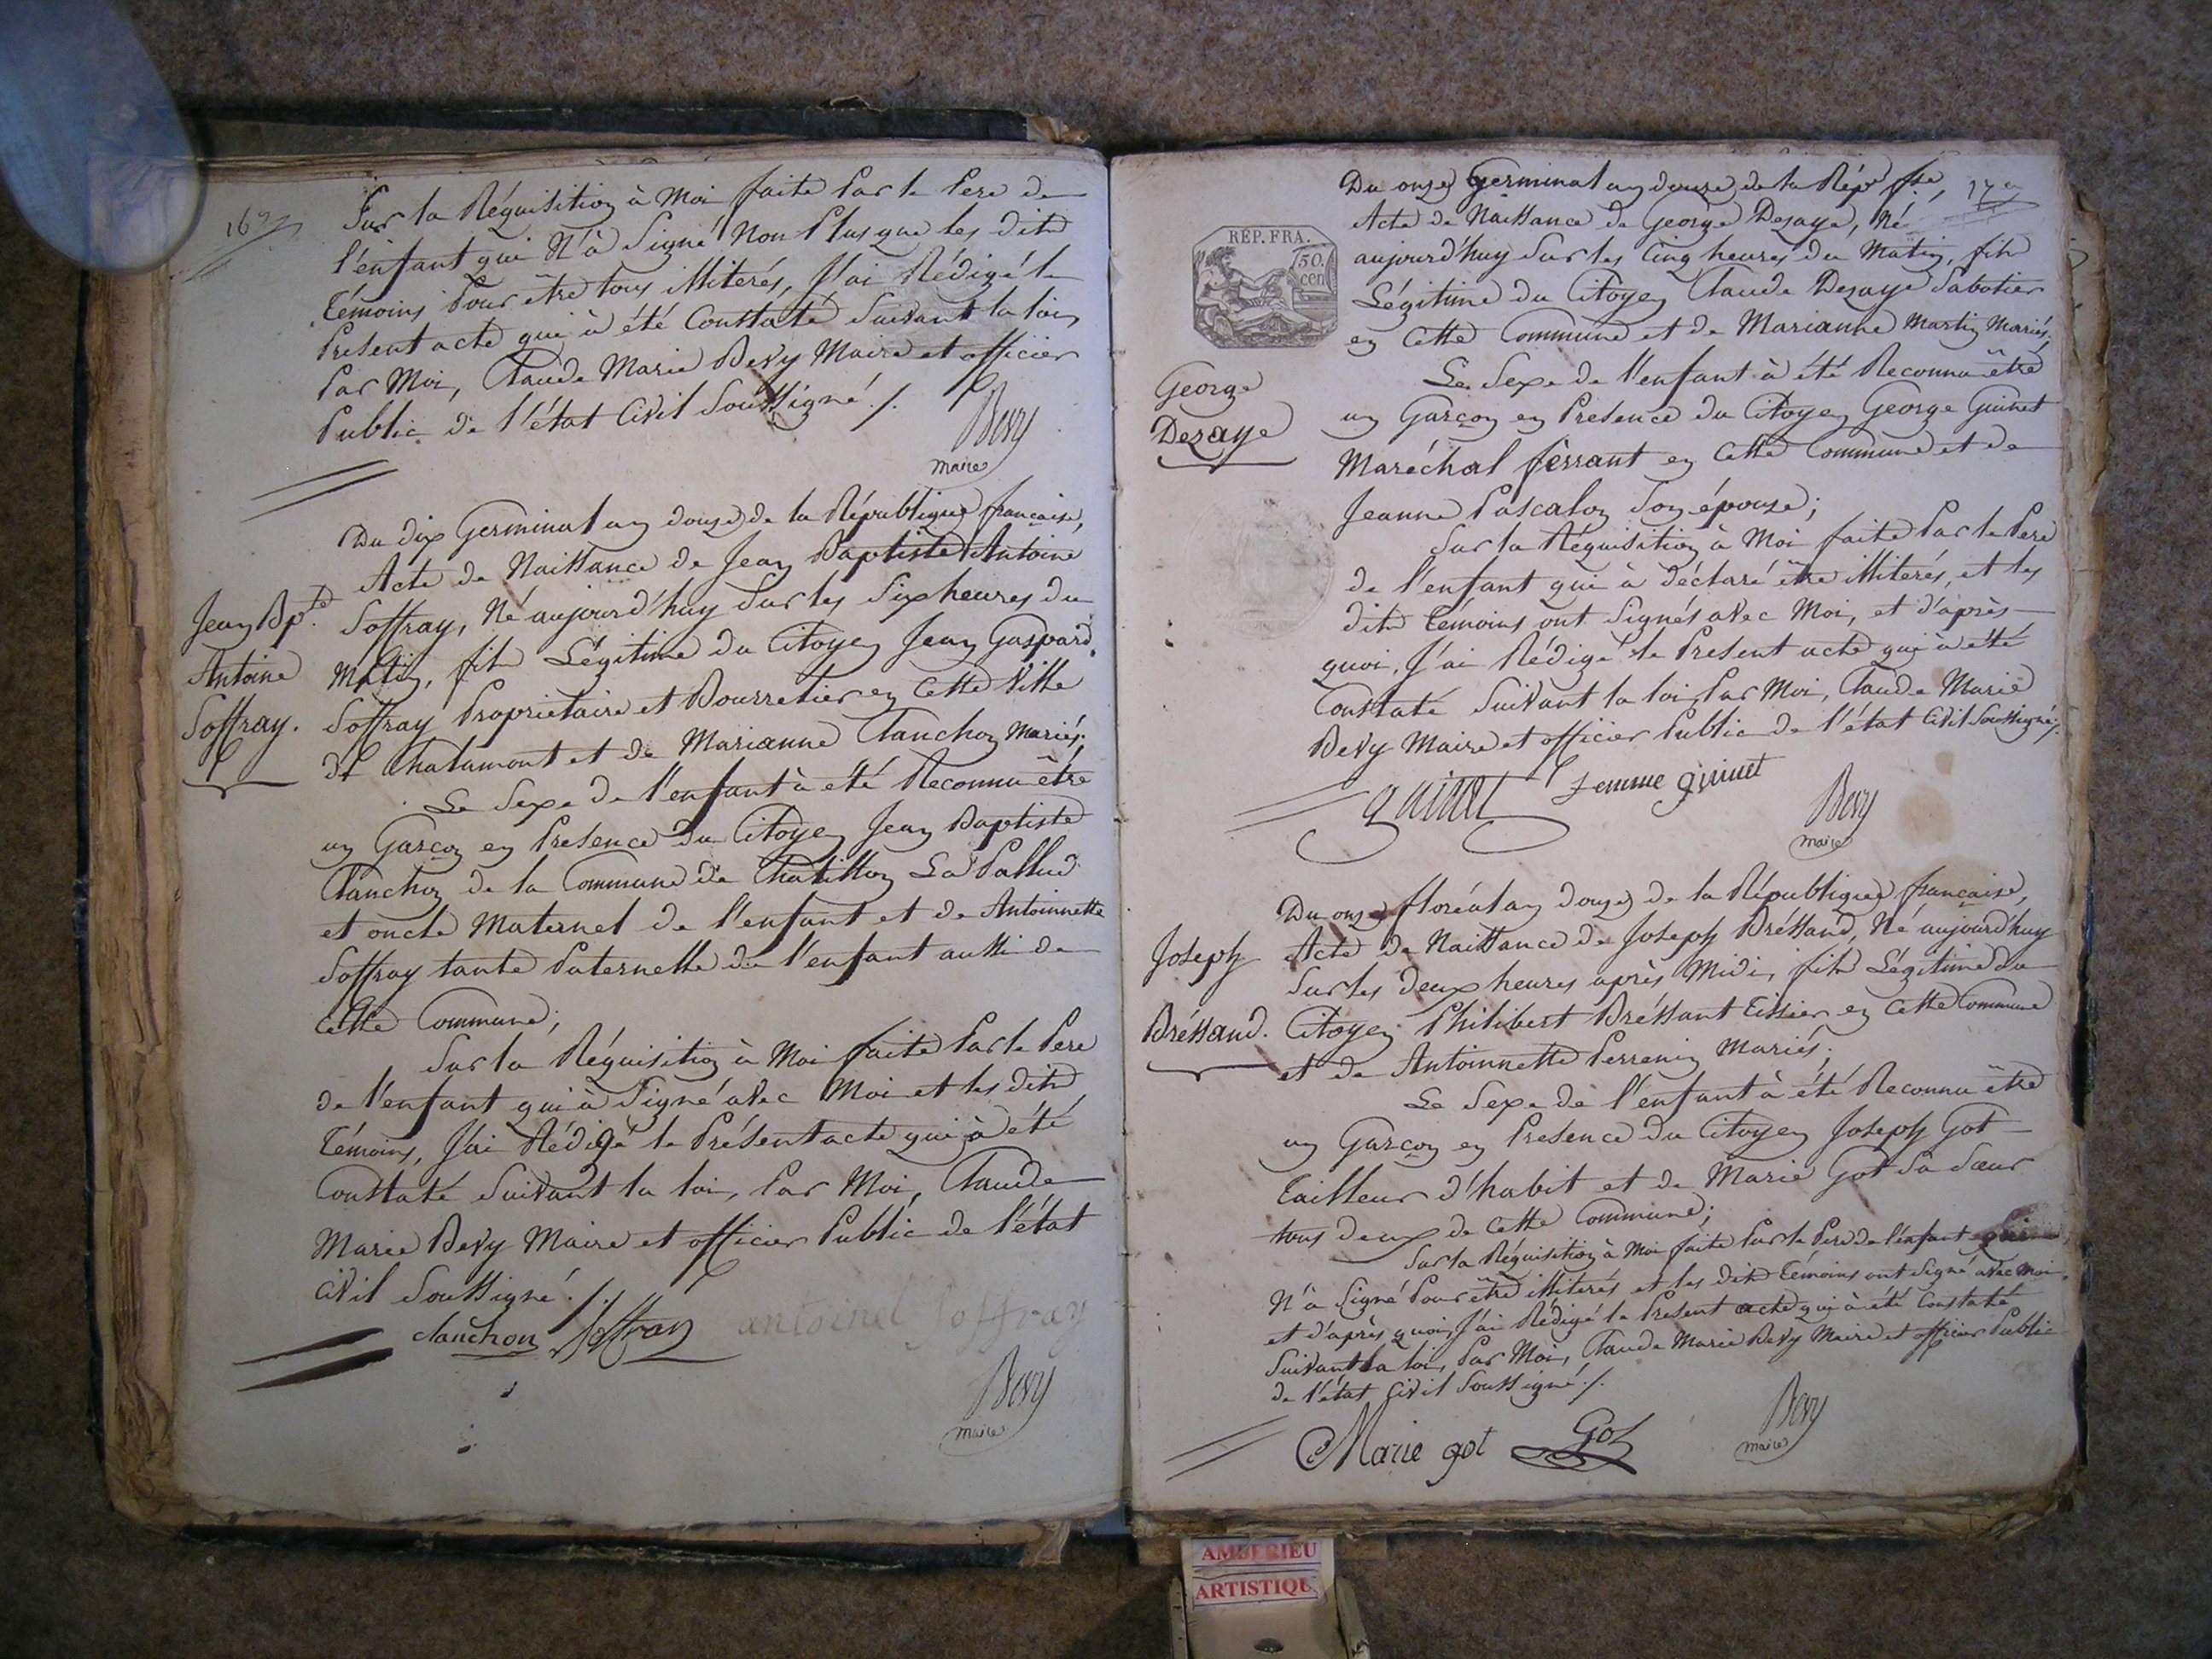 16e
Sur la Réquisition à Moi faite Par le Pere de
l'enfant qui N'à Signé Non Plus que les dits
témoins Pour être tous illiterés, J'ai Rédigé le
Présent acte qui à été Constaté Suivant la loi,
Par Moi, Claude Marie Bevy Maire et officier
Public de l'état Civil Soussigné ./.
Bevy
maire
Du dix Germinal an douze de la République française,
Acte de Naissance de Jean Baptiste Antoine
Soffray, Né aujourd'huy Sur les Six heures du
Matin, fils Légitime du Citoyen Jean Gaspard
Soffray Propriétaire et Bourrelier en Cette Ville
de Chalamont et de Marianne Clanchon Mariés.
Jean Bpte
Antoine
Soffray.
Le Sexe de l'enfant à été Reconnu être
un Garçon en Présence du Citoyen Jean Baptiste
Clanchon de la Commune de Chatillon La Pallud
et oncle Maternel de l'enfant et de Antoinnette
Soffray tante Paternelle de l'enfant aussi de
Cette Commune;
Sur la Réquisition à Moi faite Par le Pere
de l'enfant qui à Signé avec Moi et les dits
témoins, J'ai Rédigé le Présent acte qui à été
Constaté Suivant la loi, Par Moi, Claude
Marie Bevy Maire et officier Public de l'état
Civil Soussigné ./.
clanchon Soffray antoinet soffray
Bevy
maire
Du onze Germinal an douze de la Répe fse, 17e
Acte de Naissance de George Dezaye, Né
aujourd'huy Sur les Cinq heures du Matin, fils
Légitime du Citoyen Claude Dezaye Sabotier
en Cette Commune et de Marianne Martin Mariés;
RÉP. FRA.
50
cen
George
Dezaye
Le Sexe de l'enfant à été Reconnu être
un Garçon en Présence du Citoyen George Guinet
Maréchal férrant en Cette Commune et de
Jeanne Pascalon Son épouse;
Sur la Réquisition à Moi faite Par le Pere
de l'enfant qui à déclaré être illiterés, et les
dits témoins ont Signés avec Moi, et d'après
quoi, J'ai Rédigé le Présent acte qui à été
Constaté Suivant la loi, Par Moi, Claude Marie
Bevy Maire et officier Public de l'état Civil Soussigné ./.
guinet femme guinet
Bevy
maire
Du onze floréal an douze de la République française,
Acte de Naissance de Joseph Bréssand, Né aujourd'huy
Sur les deux heures après Midi, fils Légitime du
Citoyen Philibert Bréssant tissier en Cette Commune
et de Antoinnette Perrenin Mariés;
Joseph
Bréssand.
Le Sexe de l'enfant à été Reconnu être
un Garçon en Présence du Citoyen Joseph Got
tailleur d'habit et de Marie Got Sa Sœur
tous deux de Cette Commune;
Sur la Réquisition à Moi faite Par le Pere de l'enfant qui
N'à Signé Pour être illiterés et les dits témoins ont Signé avec Moi,
et d'après quoi, J'ai Rédigé le Présent acte qui à été Constaté
Suivant la loi, Par Moi, Claude Marie Bevy Maire et officier Public
de l'état Civil Soussigné ./.
Marie got Got
Bevy
maire
AMBERIEU
ARTISTIQUE